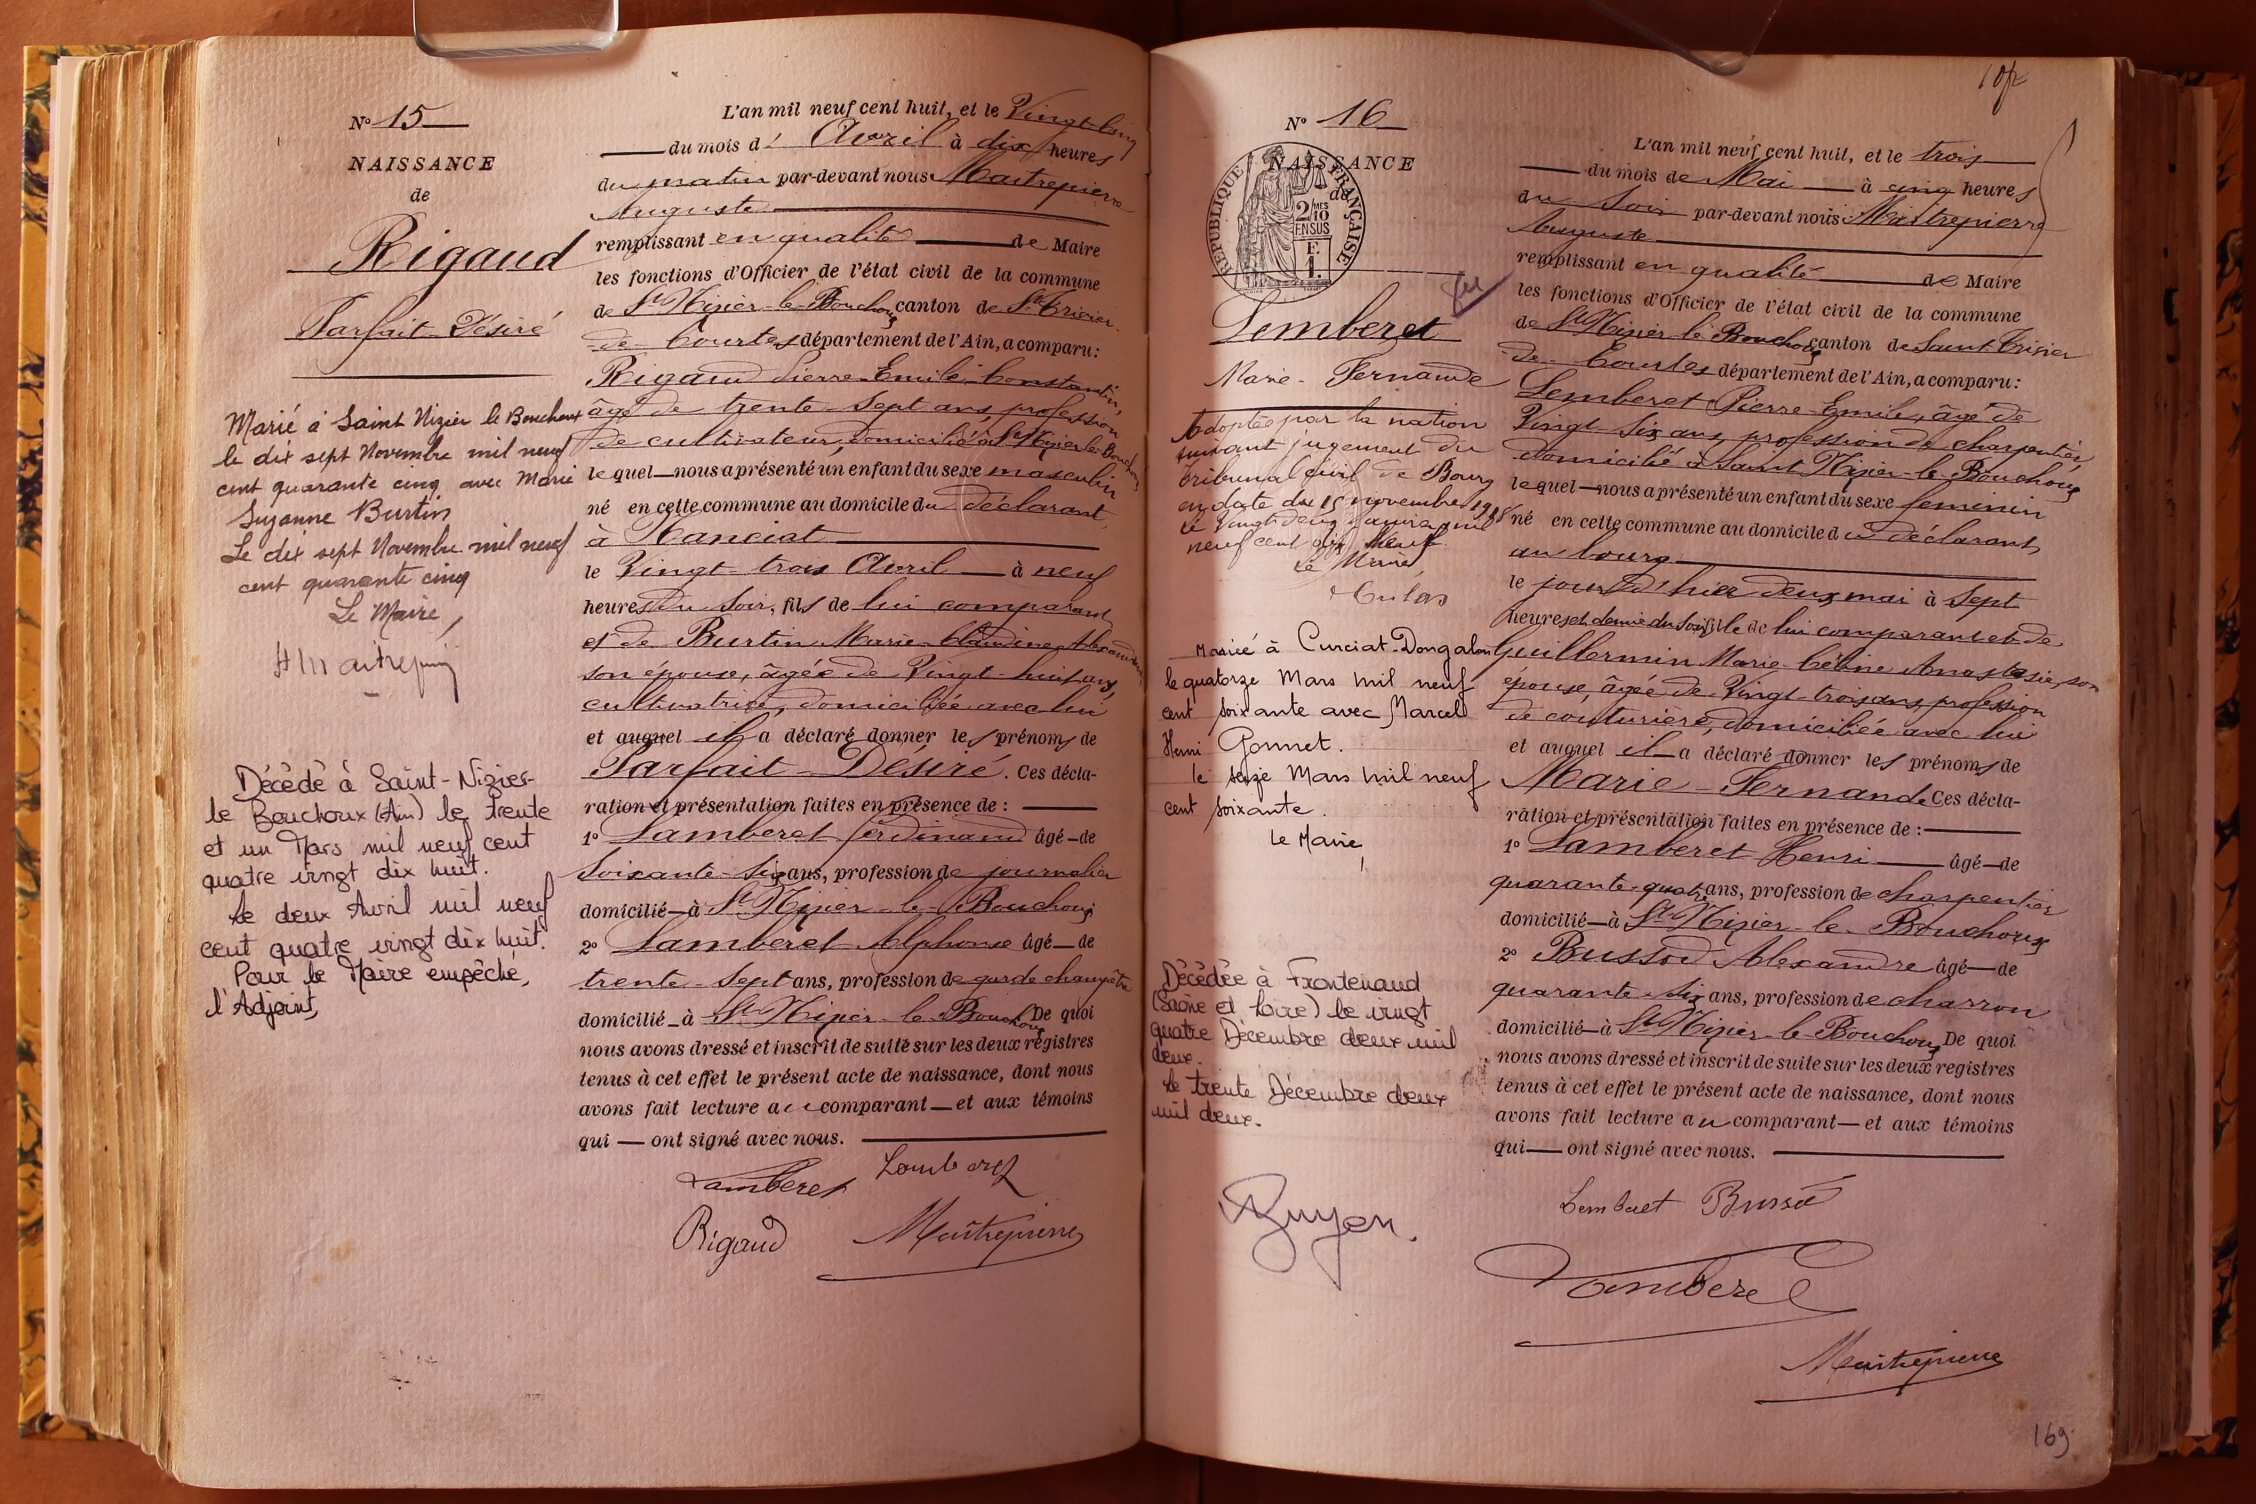 N° 15
NAISSANCE
de
Rigaud
Parfait Désiré
Marié à Saint Nizier le Bouchoux
le dix sept Novembre mil neuf
cent quarante cinq avec Marie
Suzanne Burtin
Le dix sept Novembre mil neuf
cent quarante cinq
Le Maire,
Décédé à Saint-Nizier-
le Bouchoux (Ain) le trente
et un Mars mil neuf cent
quatre vingt dix huit.
Le deux Avril mil neuf
cent quatre vingt dix huit.
Pour le Maire empêché,
l'Adjoint,
L'an mil neuf cent huit, et le Vingt-cinq
du mois d' Avril à dix heures
du matin par-devant nous Maitrepierre
Auguste
remplissant en qualité de Maire
les fonctions d'Officier de l'état civil de la commune
de St Nizier-le-Bouchoux canton de St Trivier-
de-Courtes département de l'Ain, a comparu:
Rigaud Pierre-Emile-Constantin,
âgé de trente-sept ans, profession
de cultivateur, domicilié à St Nizier-le-Bouchoux
lequel nous a présenté un enfant du sexe masculin
né en cette commune au domicile du déclarant,
à Hanciat
le Vingt-trois Avril à neuf
heures du Soir, fils de lui comparant
et de Burtin Marie-Claudine-Alexandrine
son épouse, âgée de Vingt-huit ans,
cultivatrice, domiciliée avec lui
et auquel il a déclaré donner les prénoms de
Parfait-Désiré. Ces décla-
ration et présentation faites en présence de :
1° Lamberet Ferdinand âgé de
Soixante-six ans, profession de journalier
domicilié à St Nizier-le-Bouchoux
2° Lamberet Alphonse âgé de
trente-sept ans, profession de garde champêtre
domicilié à St Nizier-le-Bouchoux De quoi
nous avons dressé et inscrit de suite sur les deux registres
tenus à cet effet le présent acte de naissance, dont nous
avons fait lecture au comparant et aux témoins
qui ont signé avec nous.
Lamberet Lamberet
Rigaud Maitrepierre
N° 16
NAISSANCE
de
RÉPUBLIQUE FRANÇAISE
2 MES
10
EN SUS
F.
1.
Lemberet
Marie-Fernande
Adoptée par la nation
suivant jugement du
tribunal civil de Bourg
en date du 15 novembre 1918
Le Vingt deux mil
neuf cent dix neuf
Le Maire
Mariée à Curciat-Dongalon
le quatorze Mars mil neuf
cent soixante avec Marcel
Henri Gonnet.
le seize Mars mil neuf
cent soixante.
Le Maire,
Décédée à Frontenaud
(Saône et Loire) le vingt
quatre Décembre deux mil
deux.
Le trente Décembre deux
mil deux.
L'an mil neuf cent huit, et le trois
du mois de Mai à cinq heures
du Soir par-devant nous Maitrepierre
Auguste
remplissant en qualité de Maire
les fonctions d'Officier de l'état civil de la commune
de St Nizier-le-Bouchoux canton de Saint Trivier
de Courtes département de l'Ain, a comparu:
Lemberet Pierre-Emile, âgé de
Vingt-six ans, profession de charpentier
domicilié à Saint Nizier-le-Bouchoux
lequel nous a présenté un enfant du sexe feminin
né en cette commune au domicile du déclarant,
au bourg
le jour d'hier deux mai à Sept
heures et demie du Soir, fille de lui comparant et de
Guillermin Marie-Céline Anastasie, son
épouse, âgée de Vingt-trois ans, profession
de couturière, domiciliée avec lui
et auquel il a déclaré donner les prénoms de
Marie-Fernande Ces décla-
ration et présentation faites en présence de :
1° Lamberet Henri âgé de
quarante-quatre ans, profession de charpentier
domicilié à St Nizier-le-Bouchoux
2° Bussod Alexandre âgé de
quarante-six ans, profession de charron
domicilié à St Nizier-le-Bouchoux De quoi
nous avons dressé et inscrit de suite sur les deux registres
tenus à cet effet le présent acte de naissance, dont nous
avons fait lecture au comparant et aux témoins
qui ont signé avec nous.
Lemberet Bussod
Lamberet
Maitrepierre
169